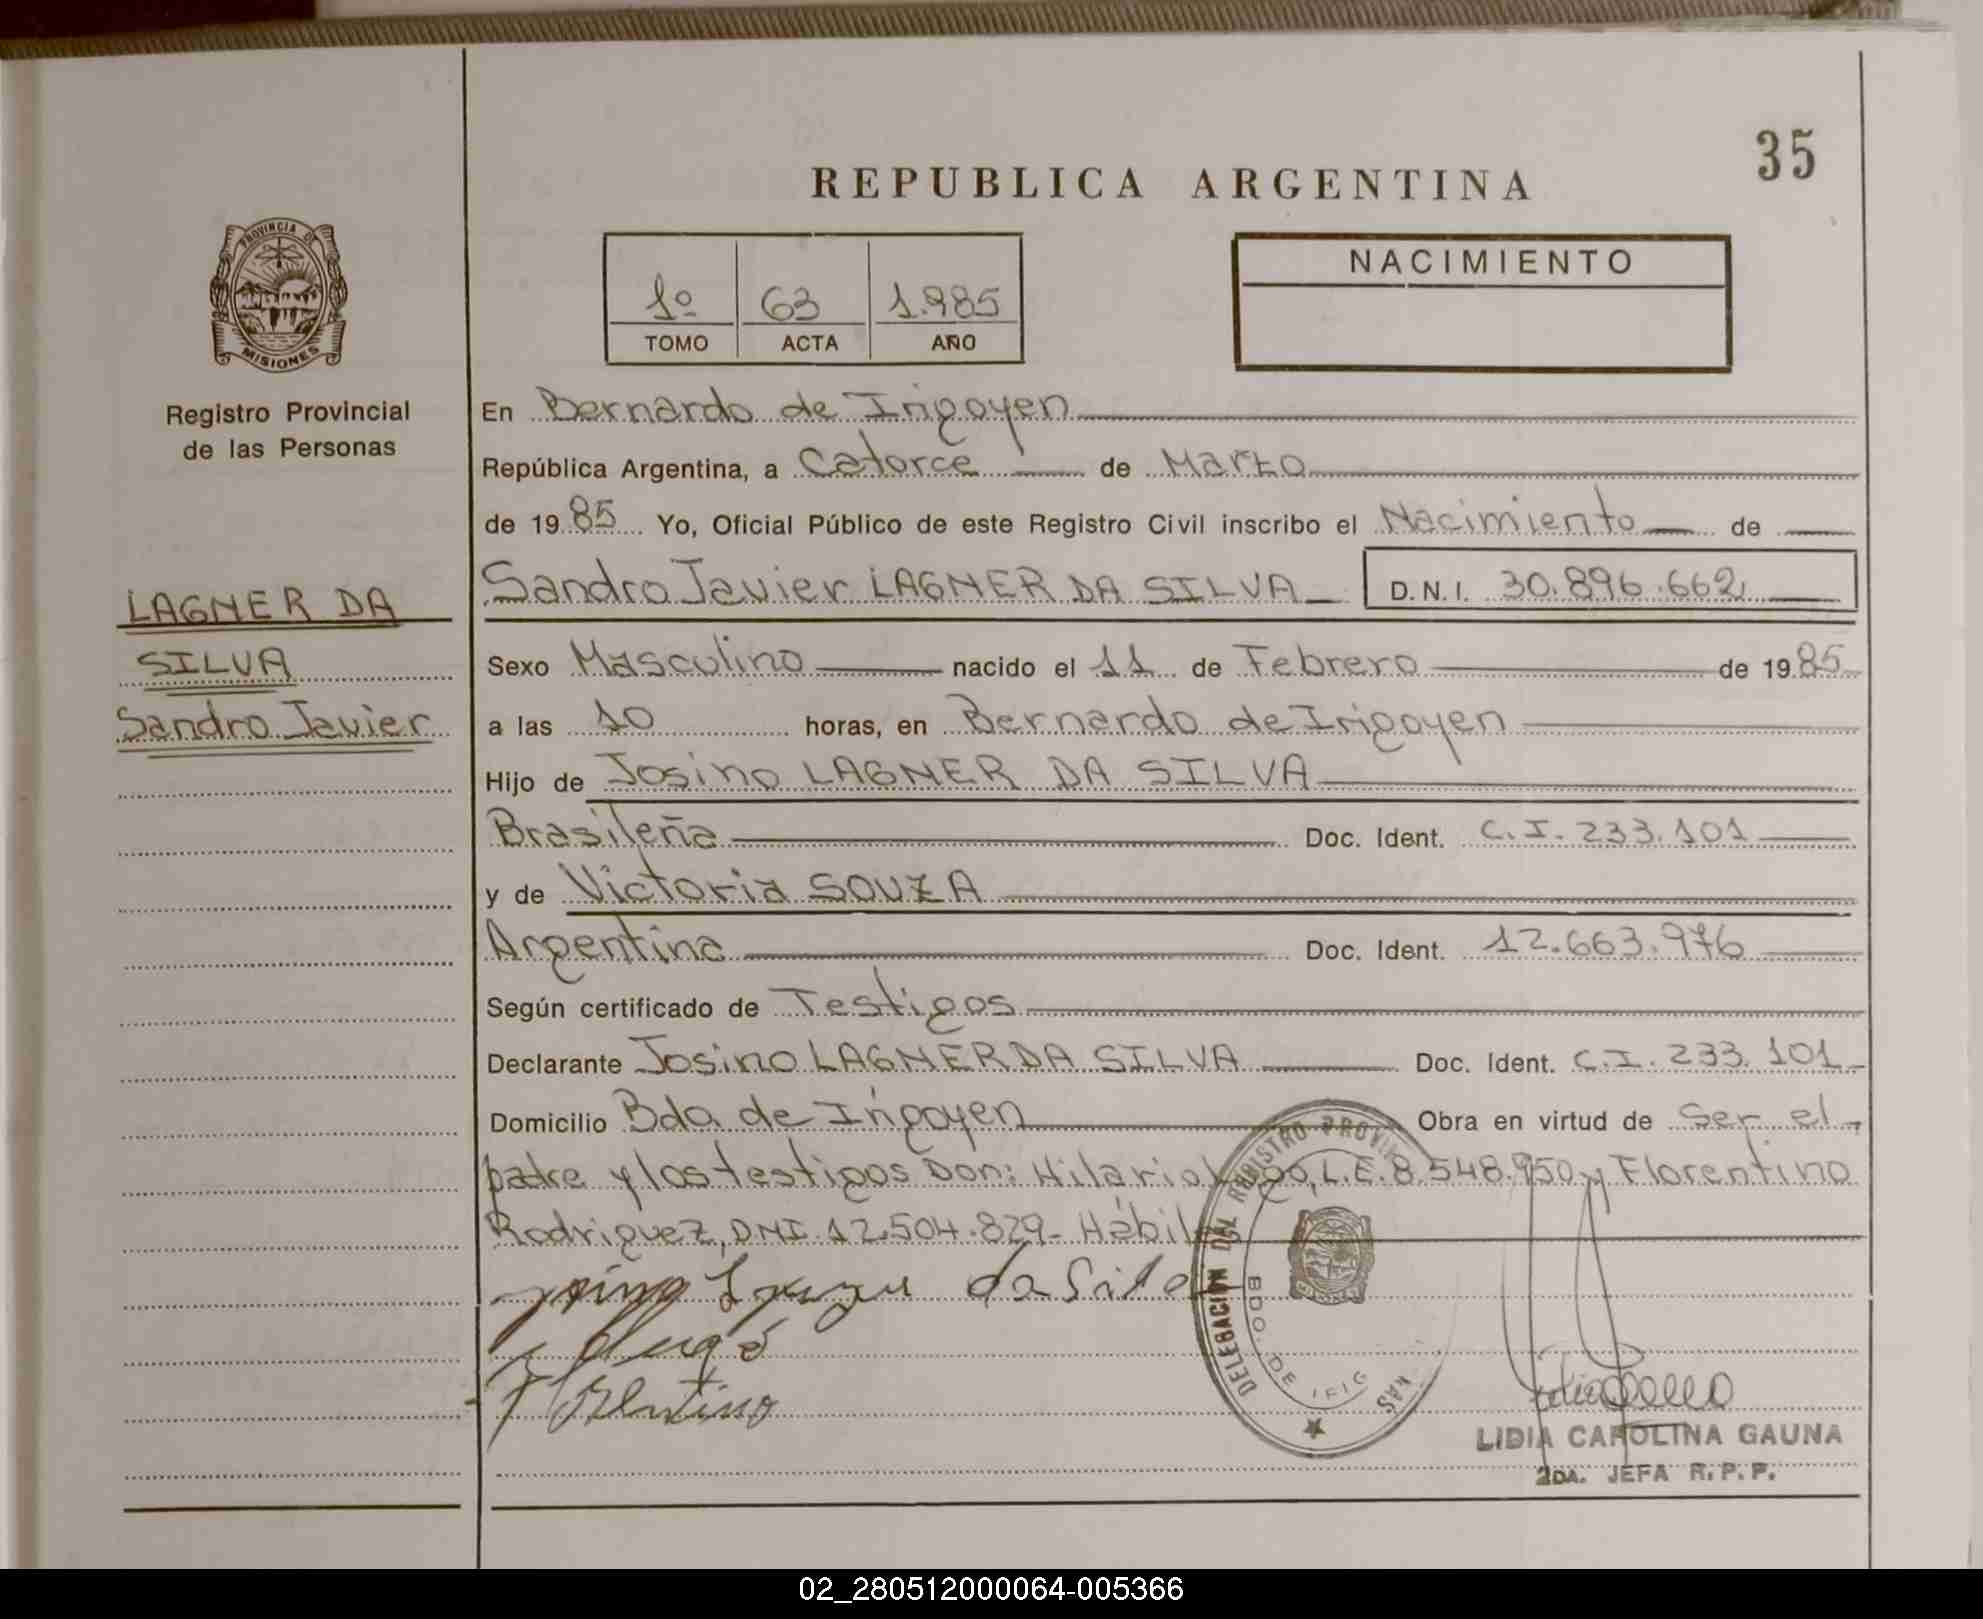 35
REPUBLICA ARGENTINA
PROVINCIA DE
MISIONES
Registro Provincial
de las Personas
1º 63 1.985
TOMO ACTA AÑO
NACIMIENTO
En Bernardo de Irigoyen
República Argentina, a Catorce de Marzo
de 1985 Yo, Oficial Público de este Registro Civil inscribo el Nacimiento de
Sandro Javier LAGNER DA SILVA D.N.I. 30.896.662
LAGNER DA
SILVA
Sandro Javier
Sexo Masculino nacido el 11 de Febrero de 1985
a las 10 horas, en Bernardo de Irigoyen
Hijo de Josino LAGNER DA SILVA
Brasileña Doc. Ident. C.I. 233.101
y de Victoria SOUZA
Argentina Doc. Ident. 12.663.976
Según certificado de Testigos
Declarante Josino LAGNER DA SILVA Doc. Ident. C.I. 233.101
Domicilio Bdo. de Irigoyen Obra en virtud de Ser el
padre y los testigos Don: Hilario L.E. 8.548.950 y Florentino
Rodriguez, DNI. 12.504.829 - Hábil
da Silva
Florentino
DELEGACION DEL REGISTRO
BDO. DE IRIG
LIDIA CAROLINA GAUNA
2DA. JEFA R.P.P.
02_280512000064-005366